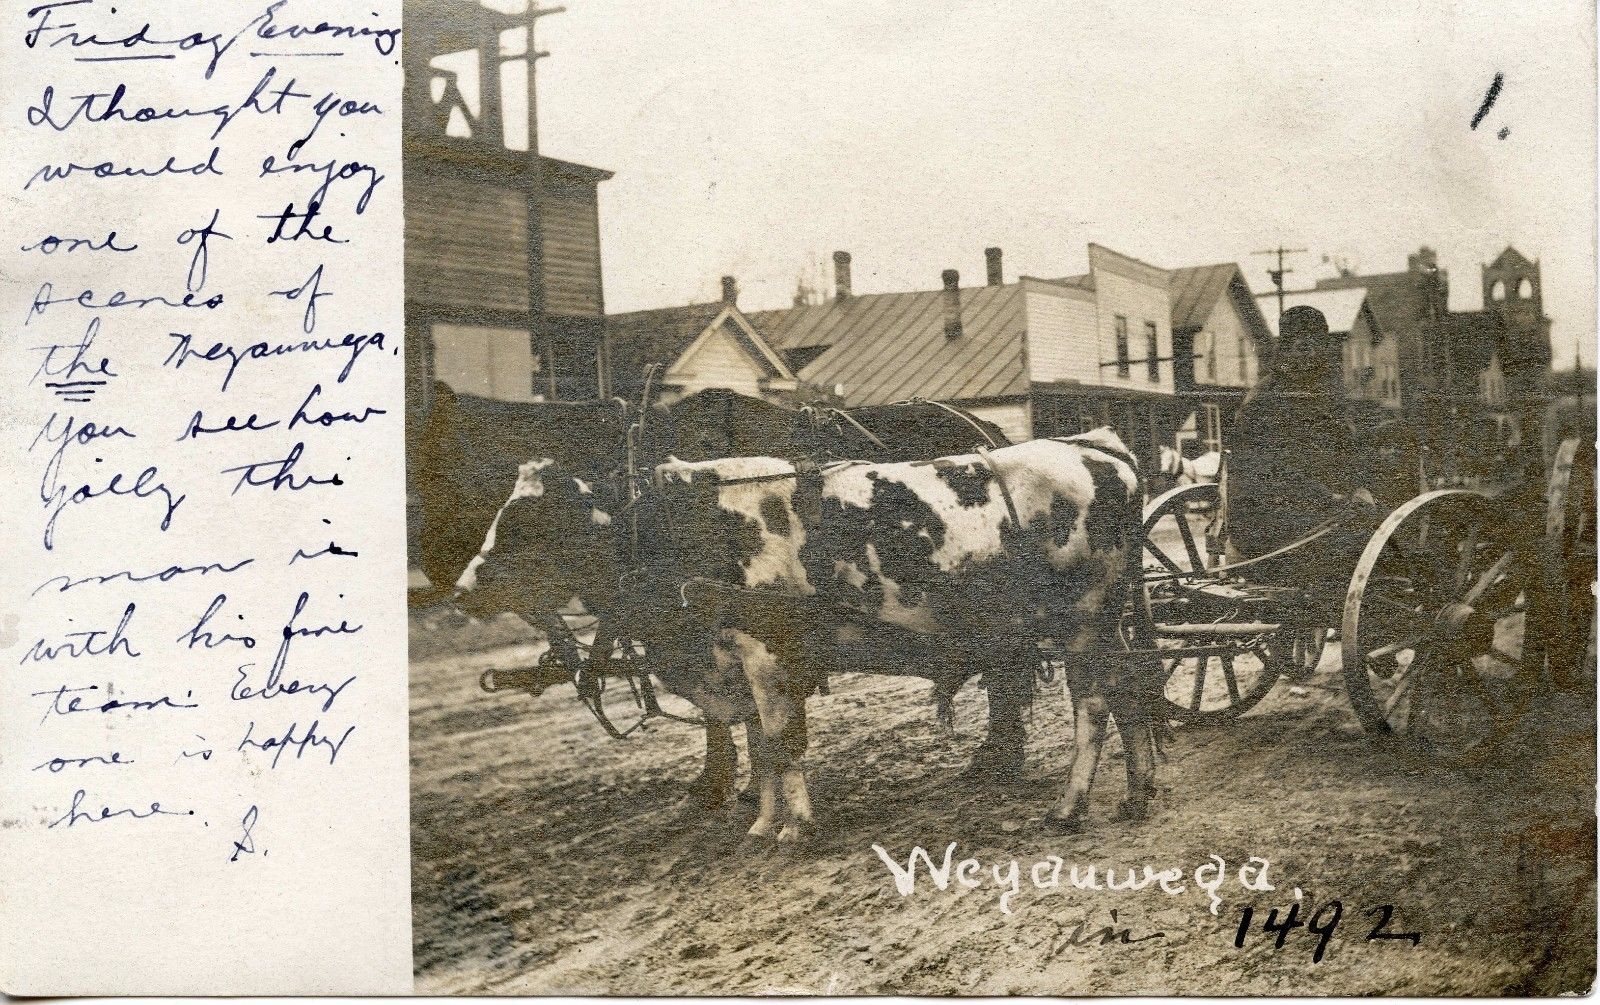 Friday Evening.
I thought you
would enjoy
one of the
scenes of
the Weyauwega.
You see how
jolly this
man is
with his fine
team. Every
one is happy
here.
S.
1.
Weyauwega,
in 1492